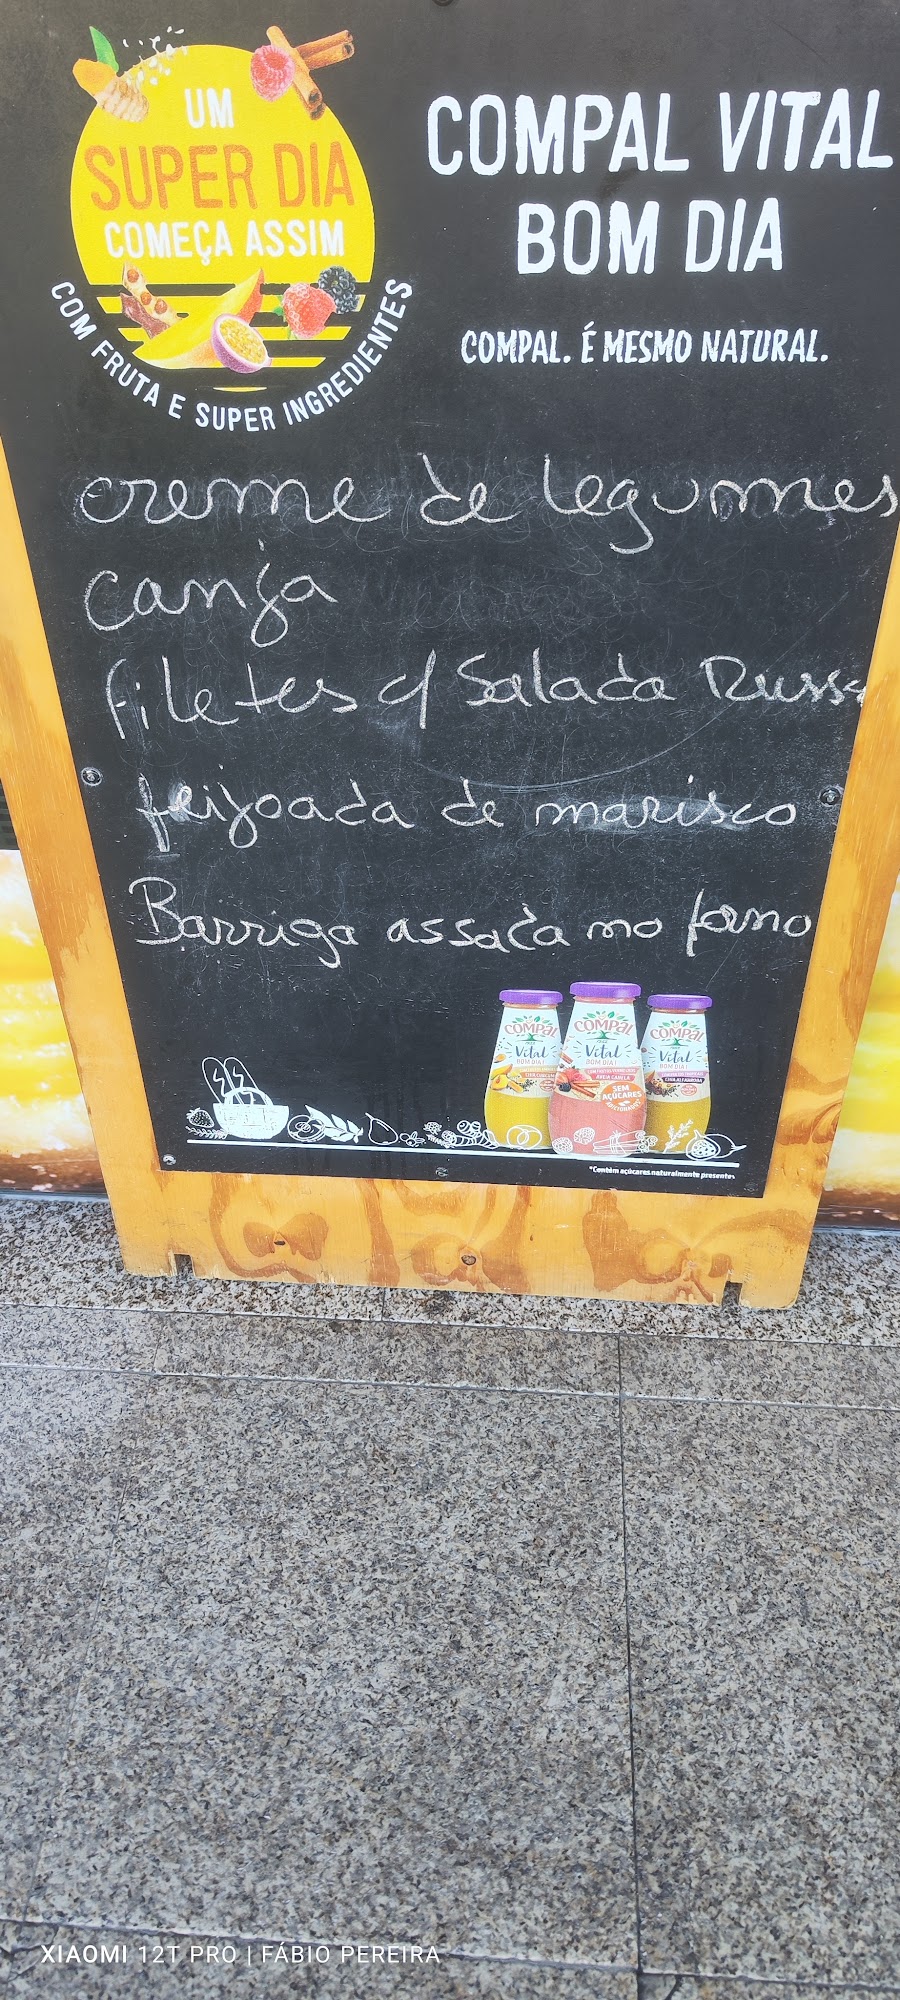 UM
SUPER DIA
COMEÇA ASSIM
COM FRUTA E SUPER INGREDIENTES
COMPAL VITAL
BOM DIA
COMPAL. É MESMO NATURAL.
creme de legumes
canja
filetes c/ Salada Russa
feijoada de marisco
Barriga assada no forno
COMPAL
Vital
BOM DIA!
COMPAL
Vital
BOM DIA!
SEM
AÇÚCARES
COMPAL
Vital
BOM DIA!
*Contém açúcares naturalmente presentes
XIAOMI 12T PRO | FÁBIO PEREIRA